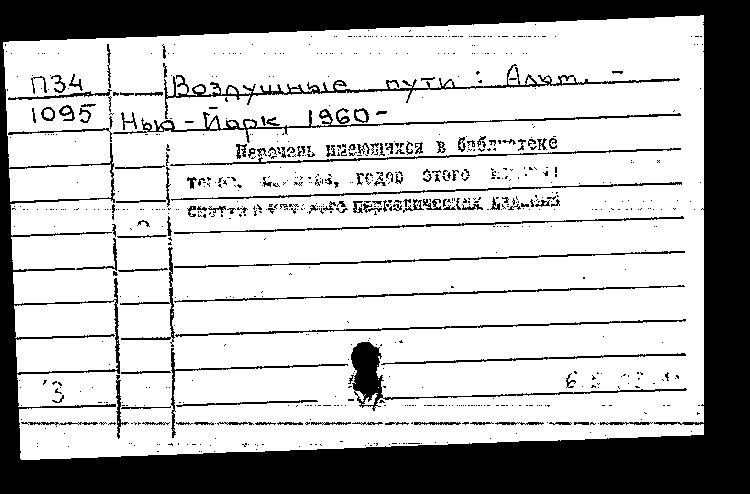 П34
Воздушные пути : Альм. -
1095
Нью-Йорк, 1960-
Перечень имеющихся в библиотеке
годов этого
периодических изданий
3